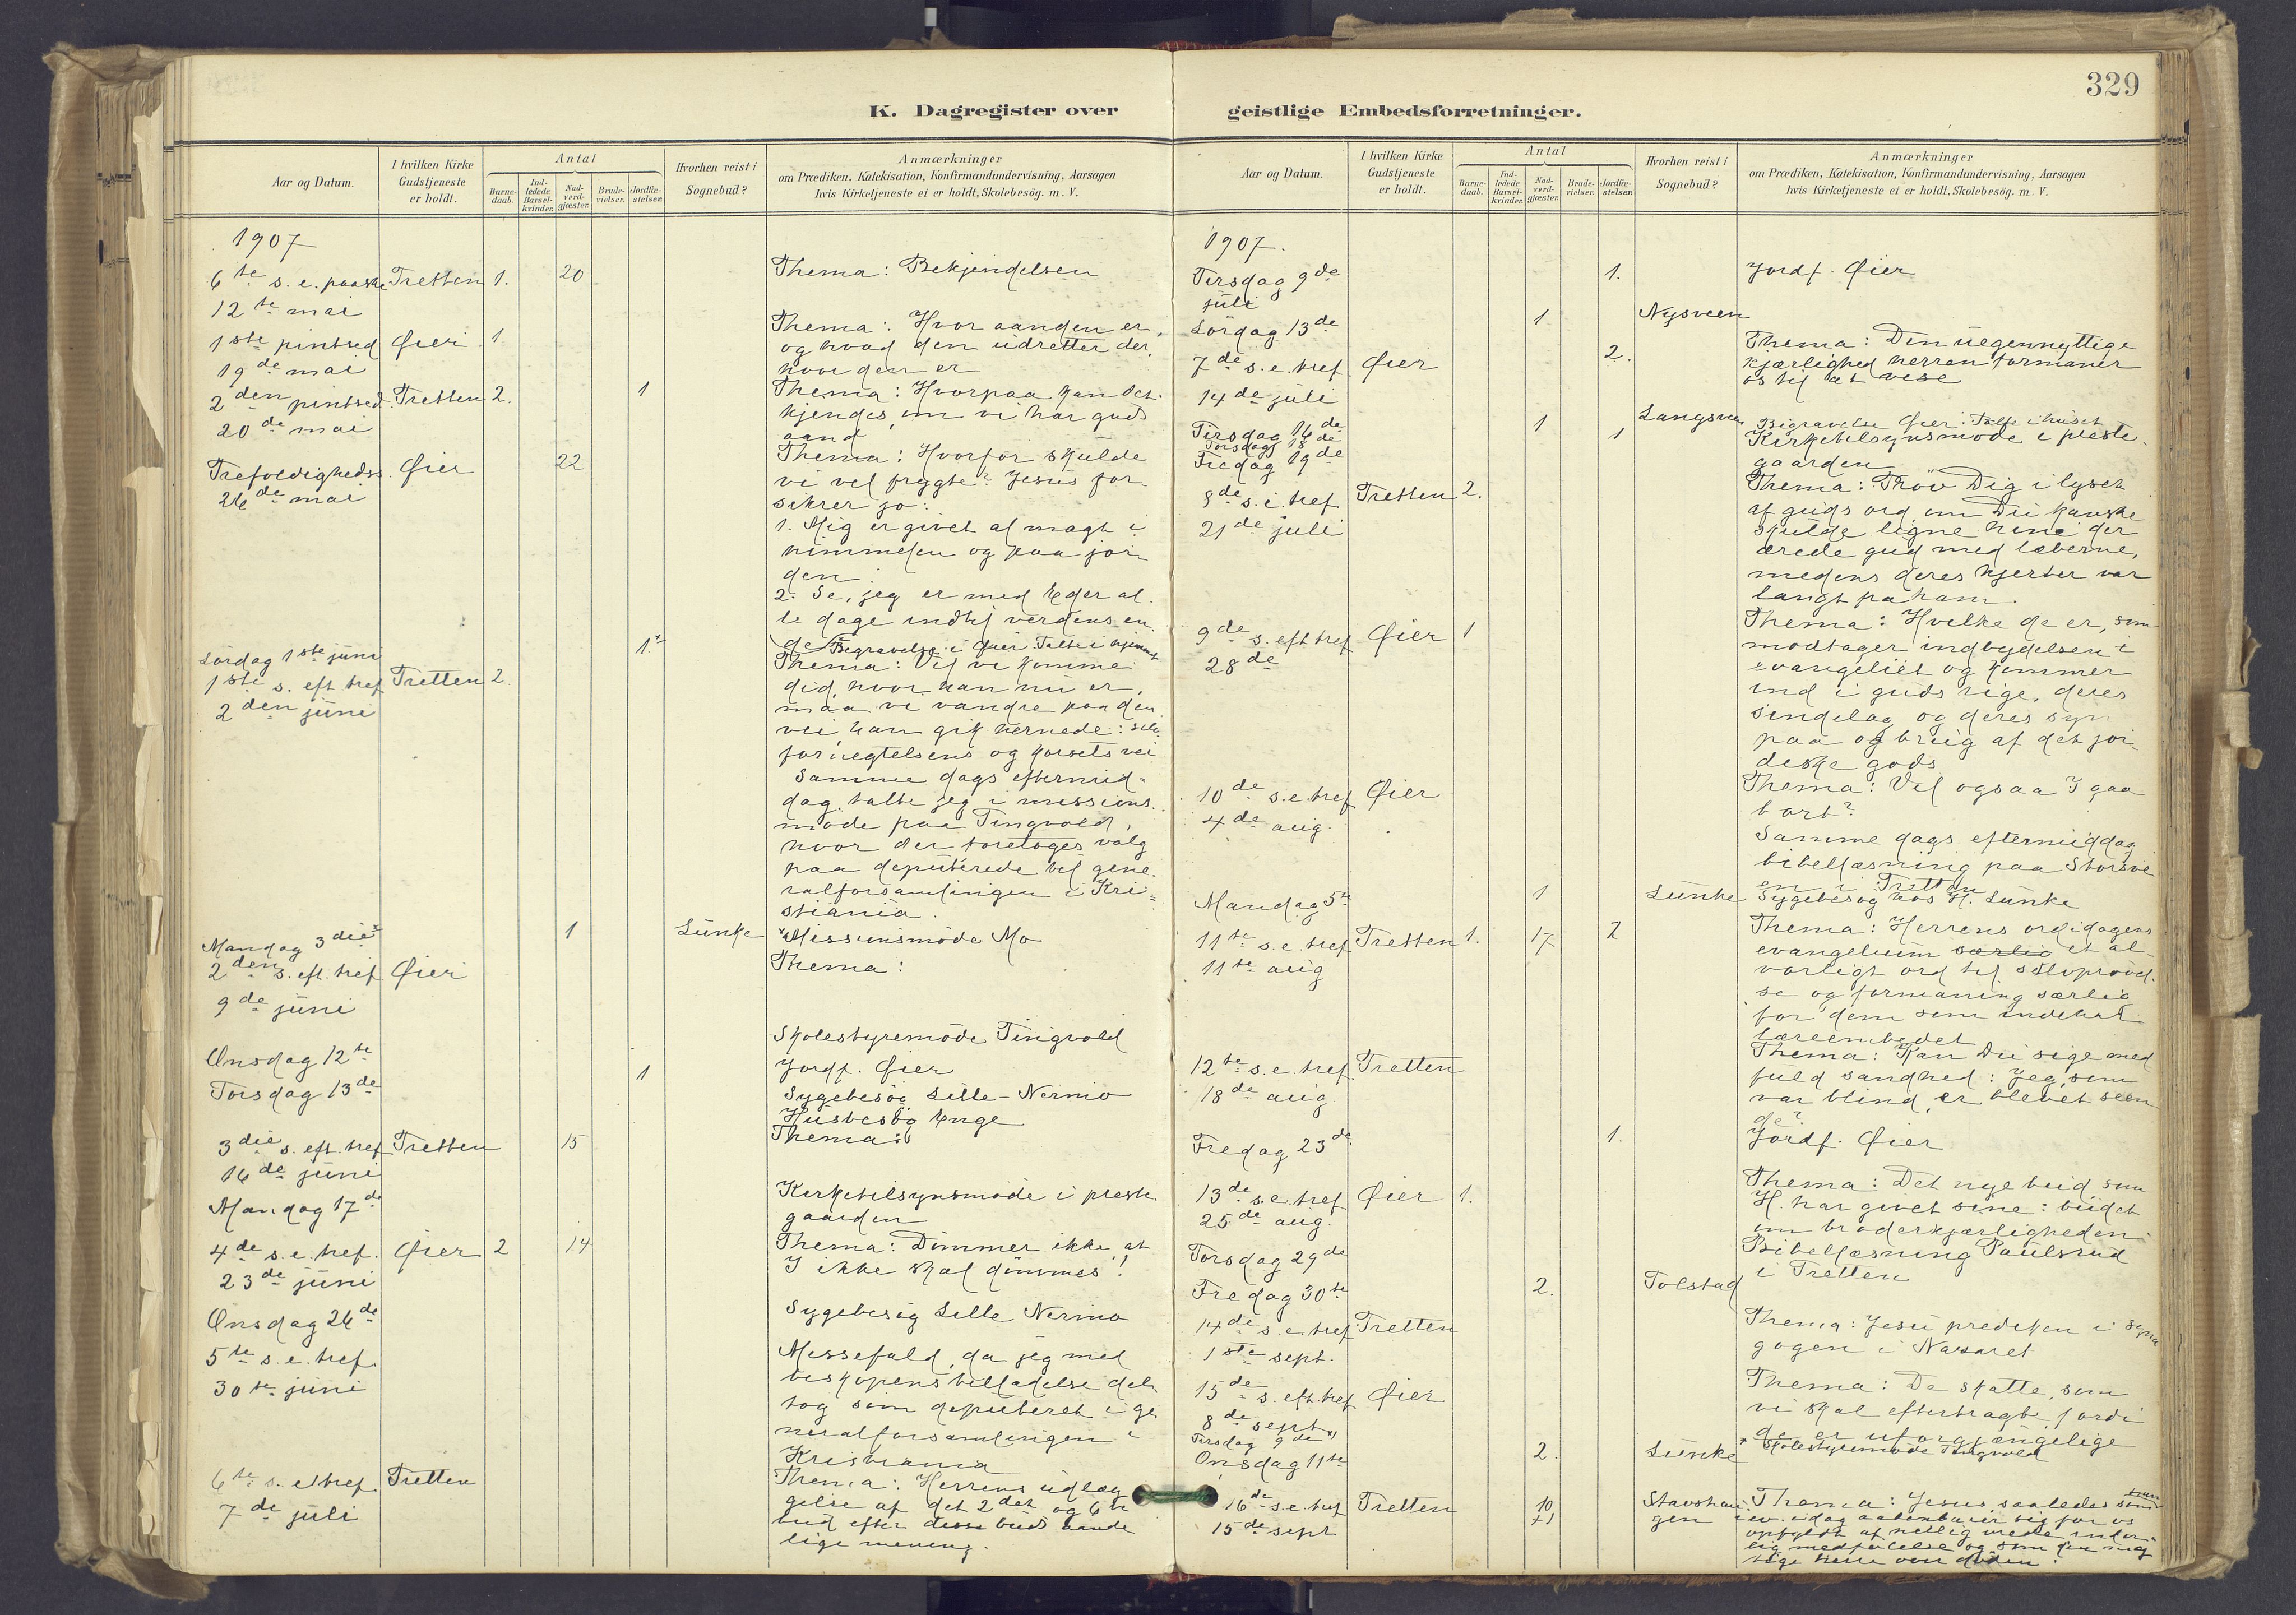 329
K. Dagregister over geistlige Embedsforretninger.
Aar og Datum.
I hvilken Kirke Gudstjeneste er holdt.
Antal
Barnedaab.
Indledede Barselkvinder.
Nadverdgjæster.
Brudevielser.
Jordfæstelser.
Hvorhen reist i Sognebud?
Anmærkninger
om Prædiken, Katekisation, Konfirmandundervisning, Aarsagen
hvis Kirketjeneste ei er holdt, Skolebesög. m. V.
1907
6te s. e. paaske Tretten 1. 20 Thema: Bekjendelsen
12te mai
1ste pintsed Øier 1 Thema: Hvor aanden er,
19de mai og hvad den udretter der,
hvor den er
2den pintsed. Tretten 2. 1 Thema: Hvorpaa kan det
20de mai kjendes, om vi har guds
aand
Trefoldighedss. Øier 22 Thema: Hvorfor skulde
26de mai vi vel frygte? Jesus for
sikrer jo:
1. Mig er givet al magt i
himmelen og paa jor
den
2. Se, jeg er med Eder al
le dage indtil verdens en
de
Lørdag 1ste juni 1* * Begravelse i Øier. Talte i hjemmet
1ste s. eft. tref Tretten 2. Thema: Vil vi komme
2den juni did, hvor han nu er,
maa vi vandre paa den
vei han gik hernede: selv
fornegtelsens og korsets vei
Samme dags eftermid-
dag talte jeg i missions
møde paa Tingvold,
hvor der foretoges valg
paa deputerede til gene
ralforsamlingen i Kri=
stiania.
Mandag 3die* 1 Lunke * Missionsmøde Mo
2den s. eft. tref Øier Thema:
9de juni
Onsdag 12te Skolestyremøde Tingvold
Torsdag 13de 1 Jordf. Øier
Sygebesøg Lille-Nermo
Husbesøg Enge
3die s. eft. tref Tretten 15 Thema:
16de juni
Mandag 17de Kirketilsynsmøde i preste
gaarden
4de s. e. tref. Øier 2 14 Thema: Dømmer ikke, at
23de juni I ikke skal dømmes!
Onsdag 26de Sygebesøg Lille Nermo
5te s. e. tref. Messefald, da jeg med
30te juni biskopens tilladelse del
tog som deputeret i ge
neralforsamlingen i
Kristiania
6te s. e. tref. Tretten Thema: Herrens udlæg
7de juli gelse af det 2det og 6te
bud efter disse buds aande
lige mening.
Aar og Datum.
I hvilken Kirke Gudstjeneste er holdt.
Antal
Barnedaab.
Indledede Barselkvinder.
Nadverdgjæster.
Brudevielser.
Jordfæstelser.
Hvorhen reist i Sognebud?
Anmærkninger
om Prædiken, Katekisation, Konfirmandundervisning, Aarsagen
hvis Kirketjeneste ei er holdt, Skolebesög. m. V.
1907.
Tirsdag 9de 1. Jordf. Øier
juli
Lørdag 13de 1 Nysveen
7de s. e. tref Øier 2. Thema: Den uegennyttige
14de juli kjærlighed herren formaner
os til at vise
Tirsdag 16de 1 Langsveen
Torsdag 18de 1 Begravelse Øier. Talte i huset
Fredag 19de Kirketilsynsmøde i preste
gaarden
8de s. e. tref Tretten 2. Thema: Prøv Dig i lyset
21de juli af guds ord om Du kanske
skulde ligne hine der
ærede gud med læberne,
medens deres hjerter var
langt fra ham.
9de s. eft tref Øier 1 Thema: Hvilke de er, som
28de modtager indbydelsen i
evangeliet og kommer
ind i guds rige, deres
sindelag og deres syn
paa og brug af det jor
diske gods
10de s. e. tref Øier Thema: Vil ogsaa I gaa
4de aug. bort?
Samme dags eftermiddag
bibellæsning paa Storsve
en i Tretten
Mandag 5te 1 Lunke Sygebesøg hos H. Lunke
11te s. e. tref Tretten 1. 17 2 Thema: Herrens ord i dagens
11te aug evangelium særlig et al
vorligt ord til selvprøvel
se og formaning særlig
for dem som indehar
læreembedet
12te s. e. tref. Tretten Thema: Kan Du sige med
18de aug. fuld sandhed: Jeg, som
var blind, er blevet seen
de?
Fredag 23de 1. Jordf. Øier
13de s. e. tref Øier 1. Thema: Det nye bud, som
25de aug. H. har givet sine: budet
om broderkjærligheden
Torsdag 29de Bibellæsning Paulsrud
i Tretten
Fredag 30te 2. Tolstad
14de s. e. tref Tretten Thema: Jesu prediken i syna
1ste sept. gogen i Nazaret
15de s. eft. tref Øier Thema: De skatte, som
8de sept. vi skal eftertragte, fordi
de er uforgjængelige
Tirsdag 9de * * Skolestyremøde Tingvold
Onsdag 11te 2. Lunke
16de s. e. tref Tretten 10 Stavshau Thema: Jesus, saaledes som
15de sept gen i ev. idag aabenbarer sig for os
opfyldt af hellig vrede inder
lig medfølelse og som den mæg
tige herre over døden.